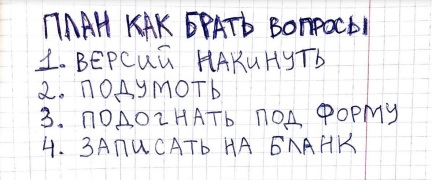 ПЛАН КАК БРАТЬ ВОПРОСЫ
1. ВЕРСИЙ НАКИНУТЬ
2. ПОДУМОТЬ
3. ПОДОГНАТЬ ПОД ФОРМУ
4. ЗАПИСАТЬ НА БЛАНК